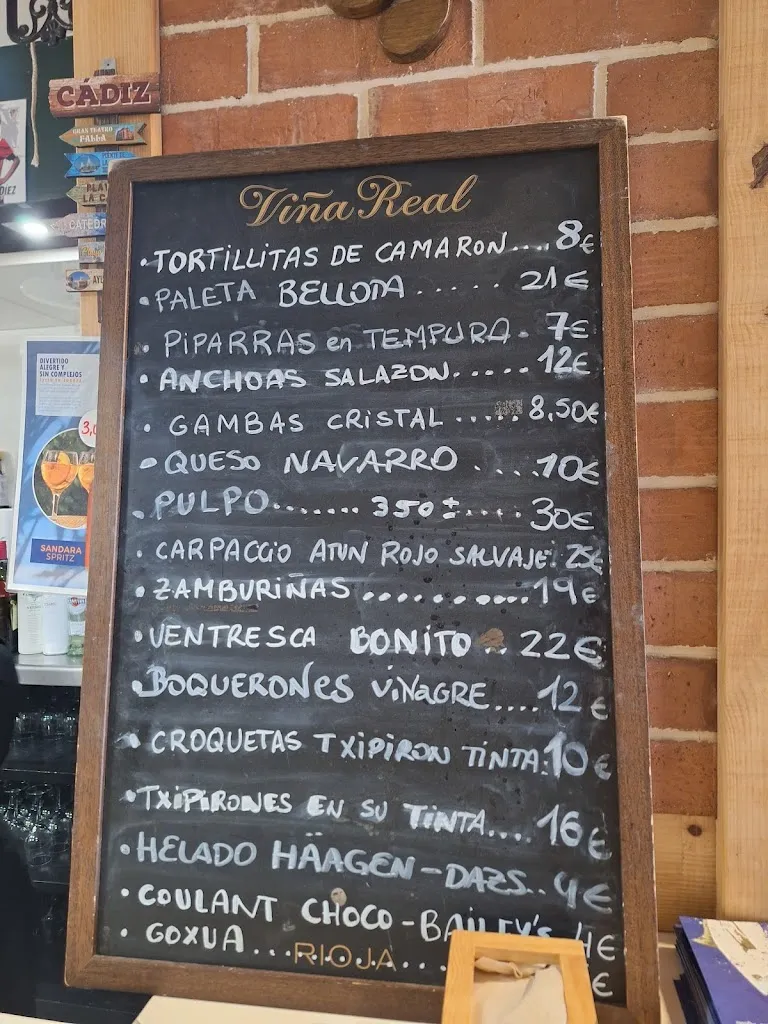 CÁDIZ
GRAN TEATRO
FALLA
DIVERTIDO
ALEGRE Y
SIN COMPLEJOS
3,0
SANDARA
SPRITZ
Viña Real
·TORTILLITAS DE CAMARON.... 8€
·PALETA BELLOTA ...... 21€
· PIPARRAS en TEMPURA. 7€
· ANCHOAS SALAZON..... 12€
· GAMBAS CRISTAL ..... 8,50€
· QUESO NAVARRO ....10€
· PULPO....... 350 ±.... 30€
· CARPACCIO ATUN ROJO SALVAJE. 25€
· ZAMBURIÑAS ...........19€
· VENTRESCA BONITO .. 22€
· BOQUERONES VINAGRE....12€
· CROQUETAS TXIPIRON TINTA.10€
·TXIPIRONES EN SU TINTA....16€
·HELADO HÄAGEN-DAZS.. 4€
·COULANT CHOCO-BAILEY'S 4€
· GOXUA............ €
RIOJA